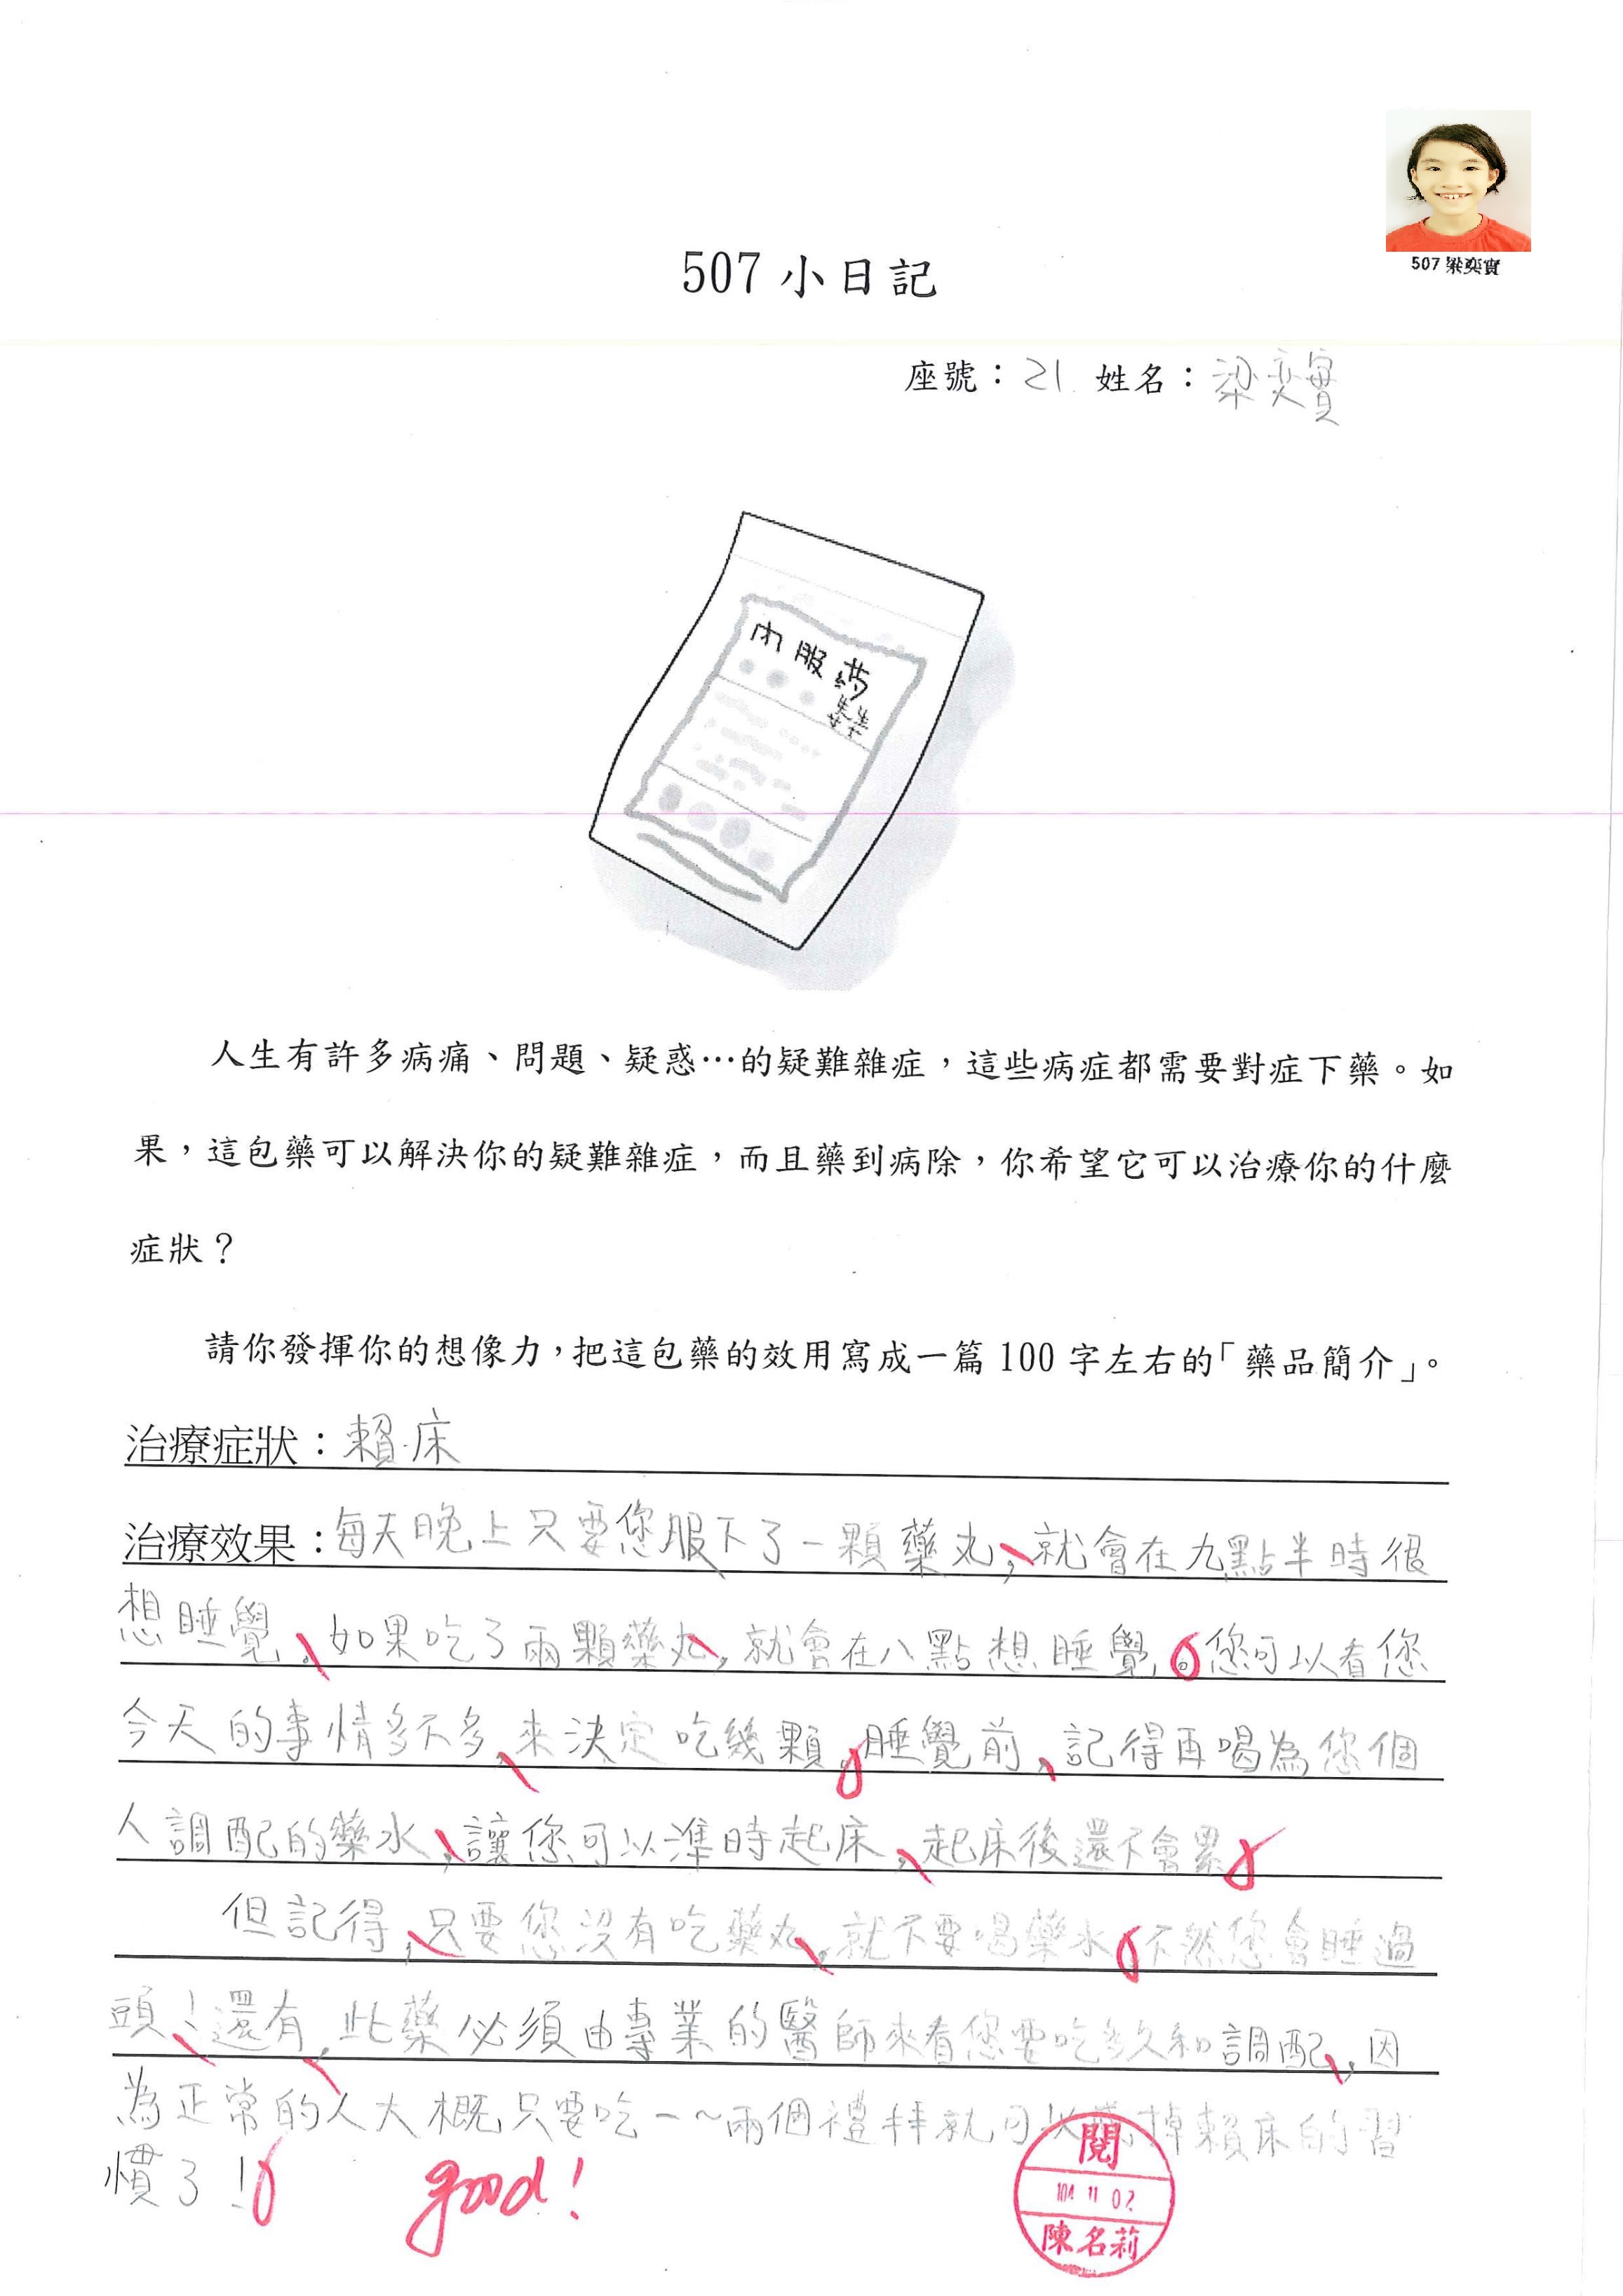 507 梁奕實
507 小日記
座號：21 姓名：梁奕實
內服药
人生有許多病痛、問題、疑惑…的疑難雜症，這些病症都需要對症下藥。如
果，這包藥可以解決你的疑難雜症，而且藥到病除，你希望它可以治療你的什麼
症狀？
請你發揮你的想像力，把這包藥的效用寫成一篇 100 字左右的「藥品簡介」。
治療症狀：賴床
治療效果：每天晚上只要您服下了一顆藥丸，就會在九點半時很
想睡覺。如果吃了兩顆藥丸，就會在八點想睡覺。您可以看您
今天的事情多不多，來決定吃幾顆。睡覺前，記得再喝為您個
人調配的藥水，讓您可以準時起床，起床後還不會累。
但記得，只要您沒有吃藥丸，就不要喝藥水。不然您會睡過
頭！還有，此藥必須由專業的醫師來看您要吃多久和調配，因
為正常的人大概只要吃一~兩個禮拜就可以掉賴床的習
慣了！
good!
閱
104 11 02
陳名莉